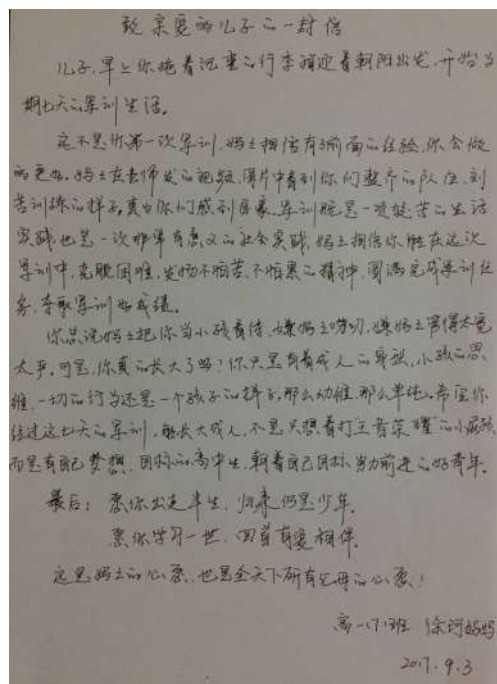 致亲爱的儿子的一封信
儿子,早上你拖着沉重的行李箱迎着朝阳出发,开始为
期七天的军训生活。
这不是你第一次军训,妈妈相信有了前面的经验,你会做
的更好。妈妈在老师发的视频、图片中看到你们整齐的队伍,刻
苦训练的样子,真为你们感到自豪。军训既是一项艰苦的生活
实践也是一次非常有意义的社会实践,妈妈相信你能在这次
军训中,克服困难,发扬不怕苦、不怕累的精神,圆满完成军训任
务,争取军训好成绩。
你总说妈妈把你当小孩看待,嫌妈妈唠叨,嫌妈妈管得太宽
太严。可是,你真的长大了吗?你只是有着成人的身躯,小孩的思
维,一切的行为还是一个孩子的样子,那么幼稚,那么单纯。希望你
经过这七天的军训,能长大成人,不是只想着打王者荣耀的小屁孩
而是有自己梦想、目标的高中生,朝着自己目标努力前进的好青年。
最后:愿你出走半生,归来仍是少年。
愿你学习一世,回首有爱相伴。
这是妈妈的心愿,也是全天下所有父母的心愿!
高一(7)班 徐珂妈妈
2017.9.3